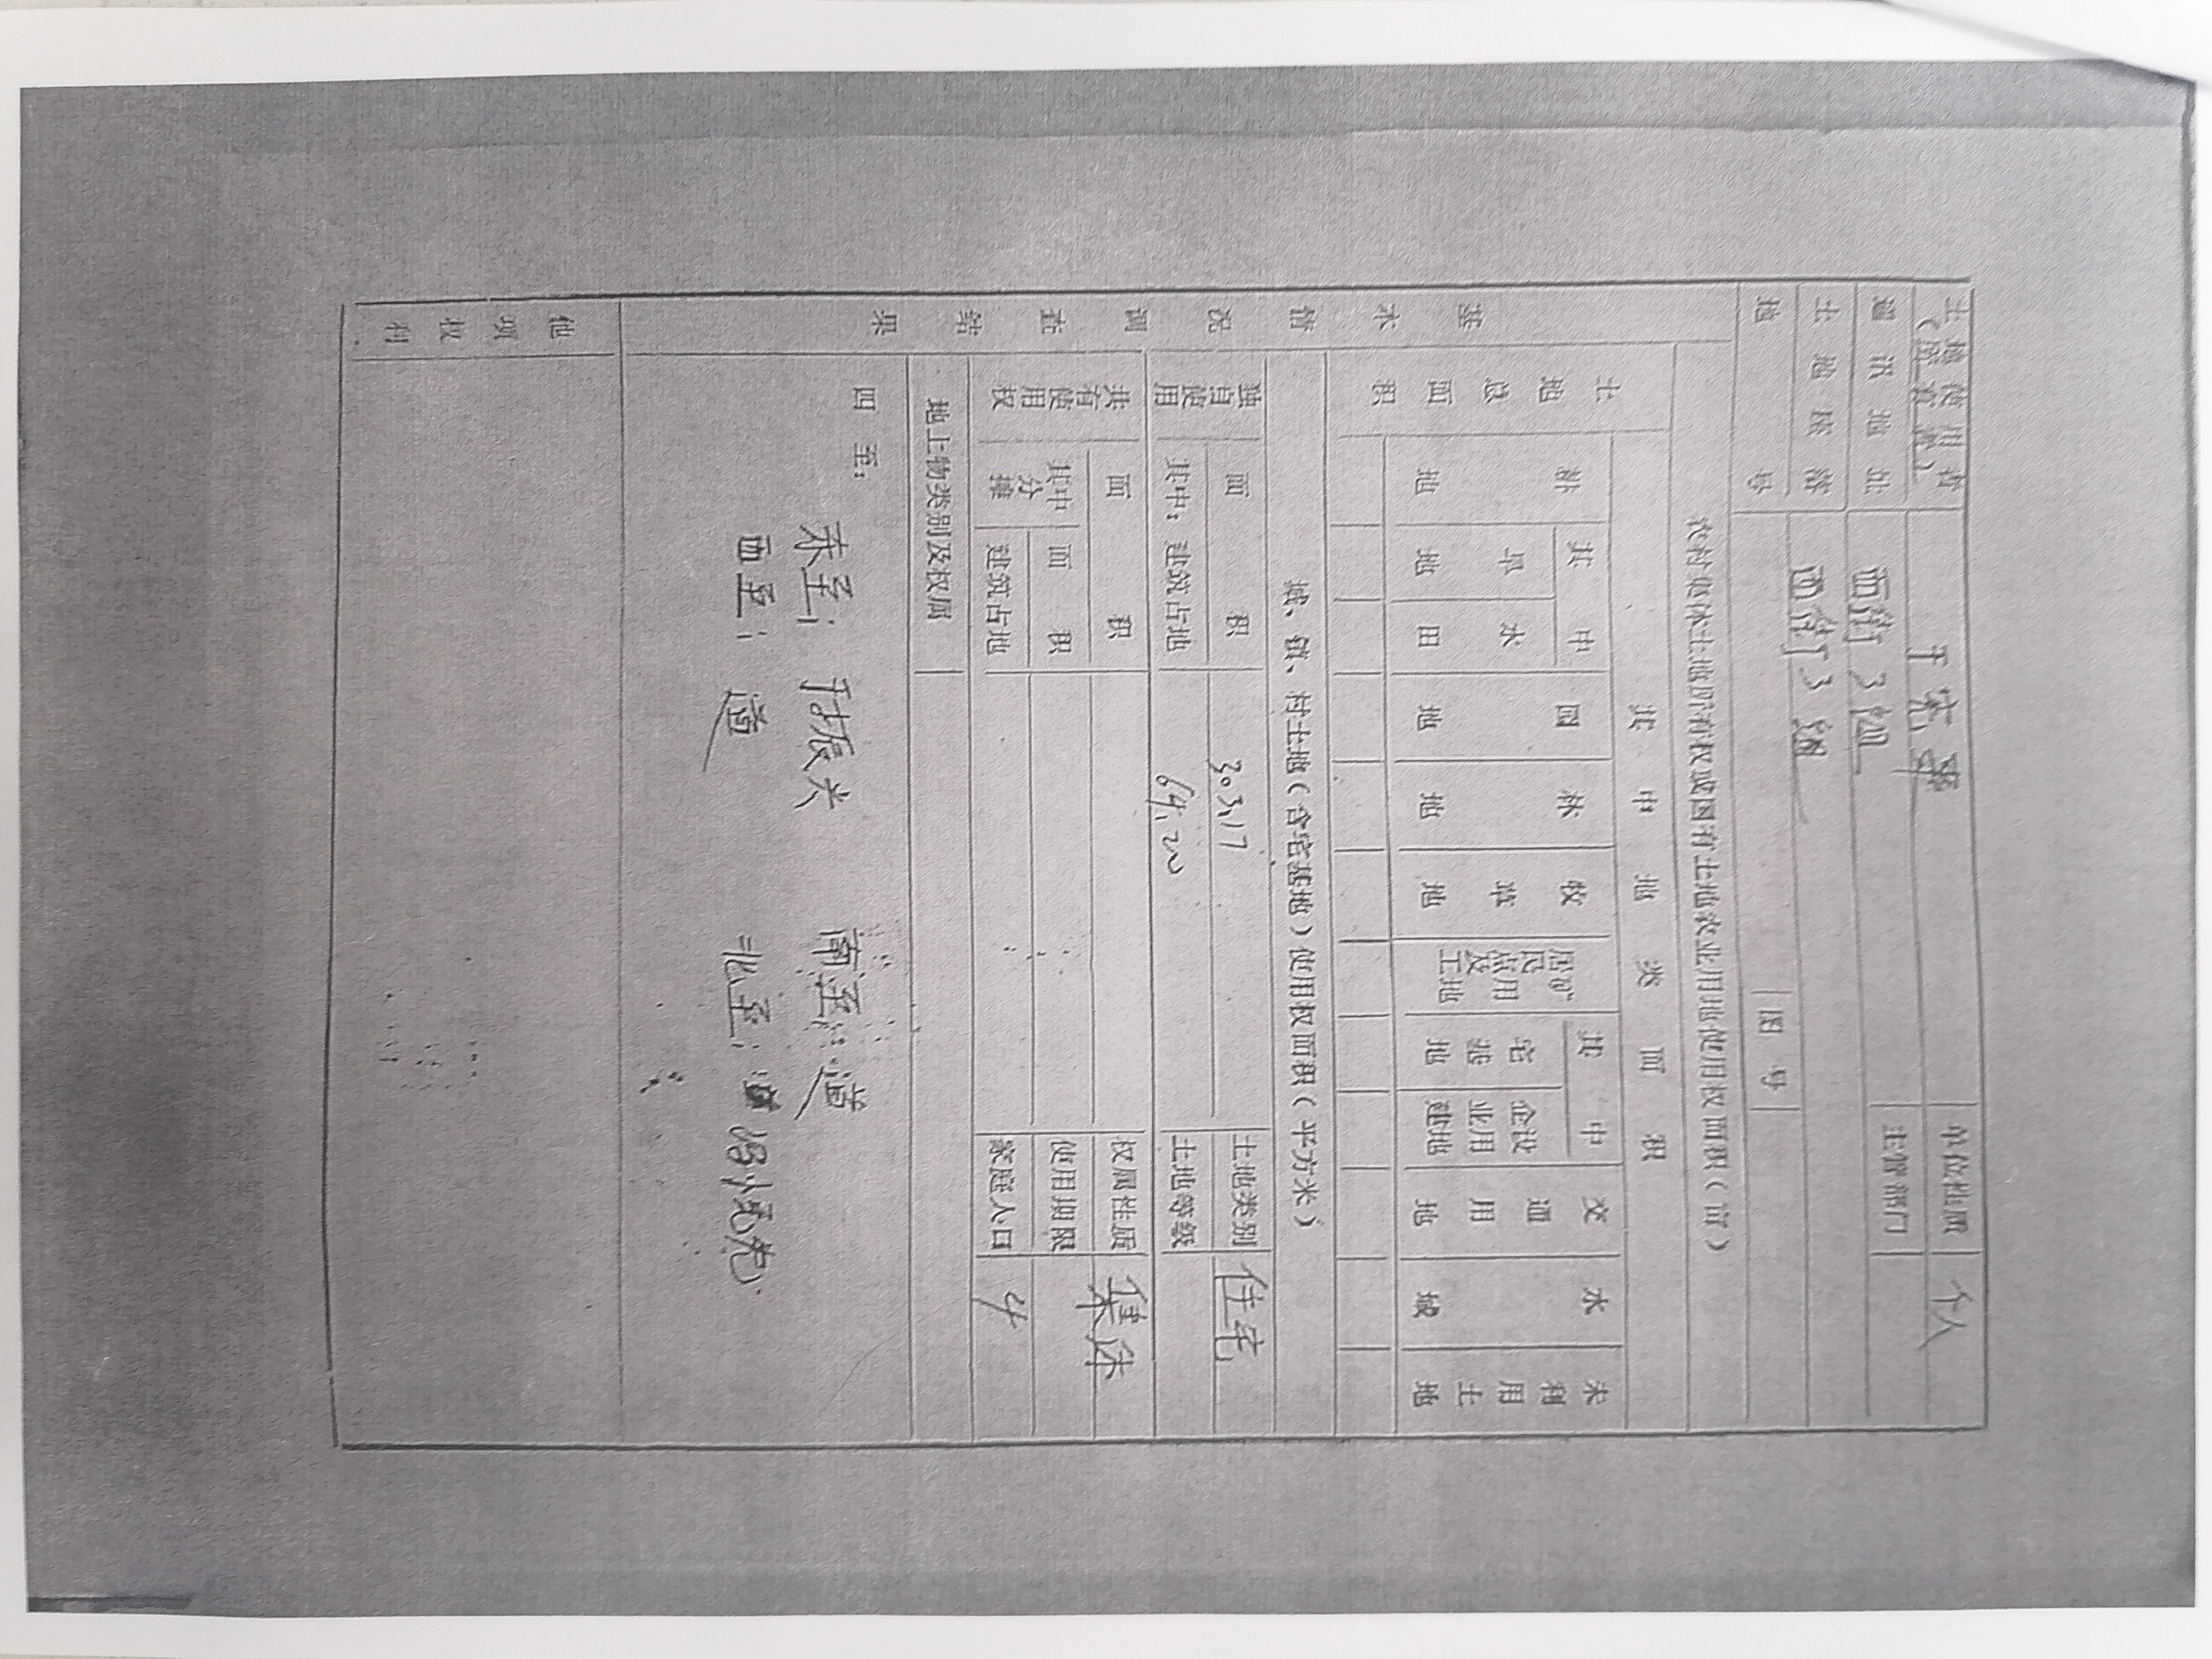 土地使用者 于宪军 单位性质 个人
（所有者）
通讯地址 西街3组 主管部门
土地座落 西街3组
地号 图号
基本情况调查结果
农村集体土地所有权或国有土地农业用地使用权面积（亩）
土地总面积 其中地类面积
耕地 其中 旱地 水田 园地 林地 牧草地 居民点及工矿用地 其中 宅基地 企业建设用地 交通用地 水域 未利用土地
城、镇、村土地（含宅基地）使用权面积（平方米）
独自使用 面积 303.17 土地类别 住宅
其中：建筑占地 64.20 土地等级
共有使用权 面积 权属性质 集体
其中分摊 面积 使用期限
建筑占地 家庭人口 4
地上物类别及权属
四至：
东至：于振兴 南至：道
西至：道 北至：
他项权利